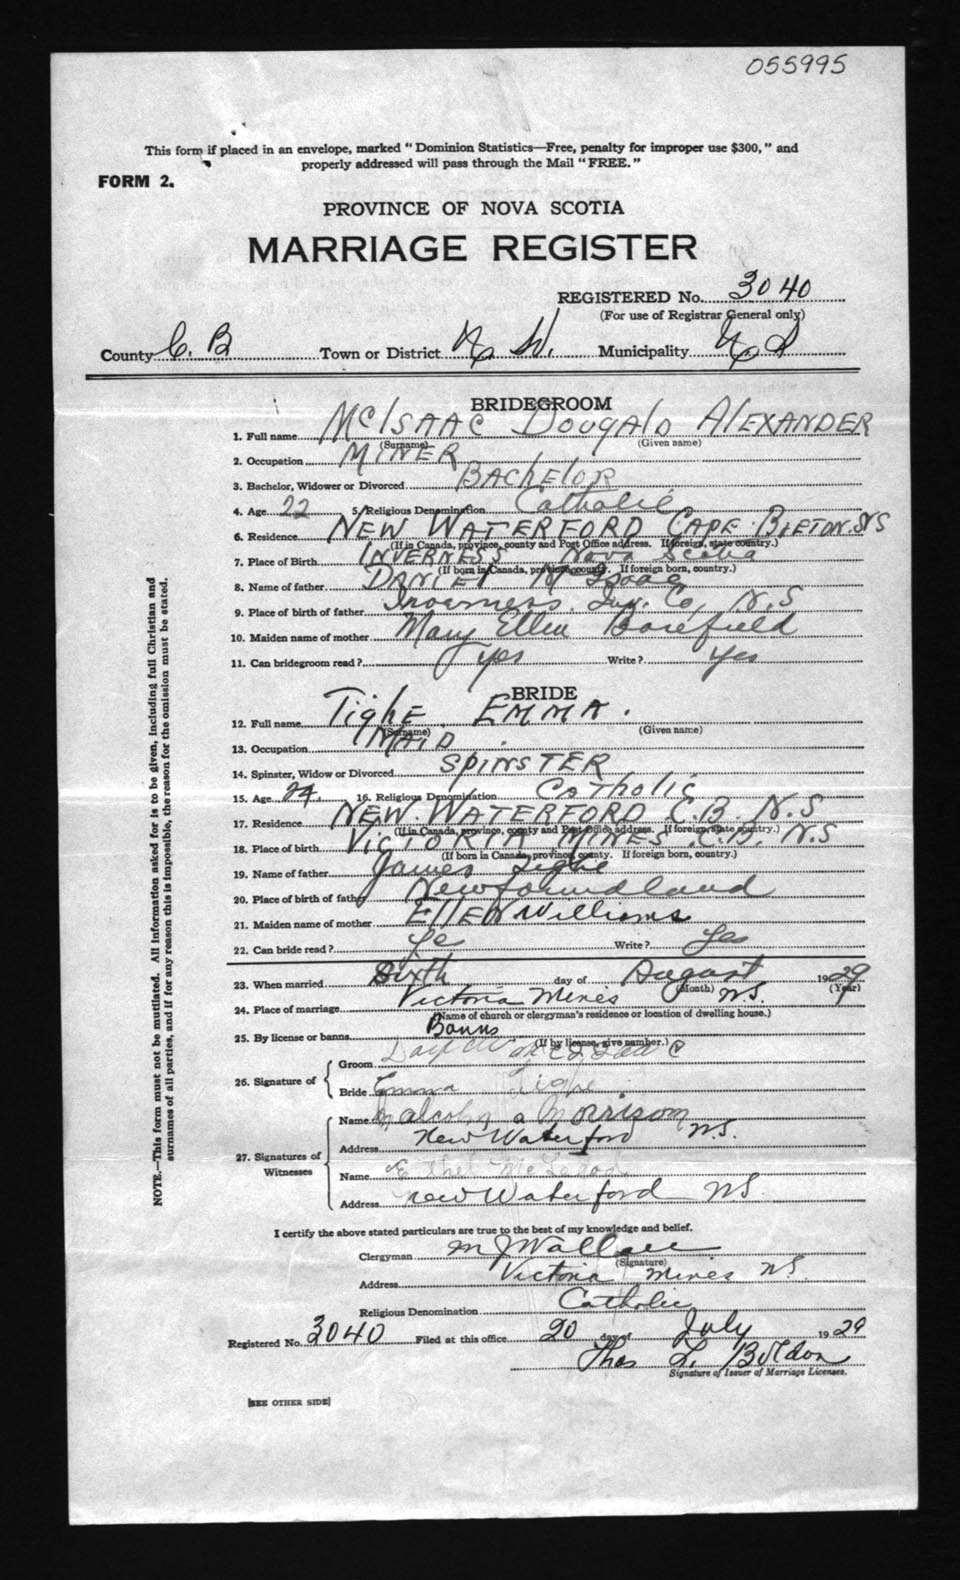 055995
This form if placed in an envelope, marked "Dominion Statistics—Free, penalty for improper use $300," and
properly addressed will pass through the Mail "FREE."
FORM 2.
PROVINCE OF NOVA SCOTIA
MARRIAGE REGISTER
REGISTERED No. 3040
(For use of Registrar General only)
County C. B Town or District N. W. Municipality
BRIDEGROOM
1. Full name McISAAC DOUGALD ALEXANDER
(Surname) (Given name)
2. Occupation MINER
3. Bachelor, Widower or Divorced BACHELOR
4. Age 22 5. Religious Denomination Catholic
6. Residence NEW WATERFORD CAPE BRETON. NS
(If in Canada, province, county and Post Office address. If foreign, state country.)
7. Place of Birth INVERNESS Nova Scotia
(If born in Canada, province, county. If foreign born, country.)
8. Name of father DANIEL McIsaac
9. Place of birth of father Inverness. Inv. Co, N.S
10. Maiden name of mother Mary Ellen
11. Can bridegroom read? yes Write? yes
BRIDE
12. Full name Tighe. EMMA.
(Surname) (Given name)
13. Occupation MAID.
14. Spinster, Widow or Divorced SPINSTER
15. Age 24. 16. Religious Denomination CATHOLIC
17. Residence NEW. WATERFORD C.B. N.S
(If in Canada, province, county and Post Office address. If foreign, state country.)
18. Place of birth VICTORIA MINES. C.B. N.S
(If born in Canada, province, county. If foreign born, country.)
19. Name of father James Tighe
20. Place of birth of father Newfoundland
21. Maiden name of mother ELLEN Williams
22. Can bride read? Yes Write? Yes
23. When married Sixth day of August 1929
(Month) (Year)
24. Place of marriage Victoria Mines N.S.
(Name of church or clergyman's residence or location of dwelling house.)
25. By license or banns Banns
(If by license, give number.)
26. Signature of
Groom McIsaac
Bride Emma Tighe
27. Signatures of Witnesses
Name Malcolm a Morrison
Address New Waterford N.S.
Name Ethel McLeod
Address New Waterford NS.
I certify the above stated particulars are true to the best of my knowledge and belief.
Clergyman M J Wallace
(Signature)
Address Victoria Mines N.S.
Religious Denomination Catholic
Registered No. 3040 Filed at this office 20 day of July 1929
Thos L.
Signature of Issuer of Marriage Licenses.
[SEE OTHER SIDE]
NOTE.—This form must not be mutilated. All information asked for is to be given, including full Christian and
surnames of all parties, and if for any reason this is impossible, the reason for the omission must be stated.